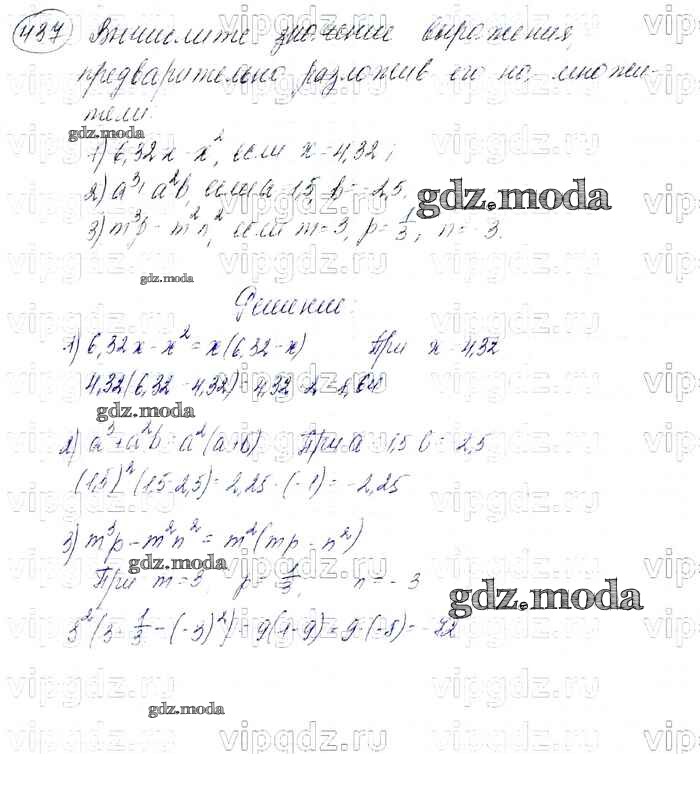 437 Вычислите значение выражения,
предварительно разложив его на множи-
тели.
1) 6,32x - x², если x = 4,32;
2) a³ + a²b, если a = 1,5, b = -2,5;
3) m³p - m²n², если m = 3, p = 1/3, n = -3.
Решение:
1) 6,32x - x² = x(6,32 - x) При x = 4,32
4,32(6,32 - 4,32) = 4,32 · 2 = 8,64
2) a³ + a²b = a²(a+b) При a = 1,5 b = -2,5
(1,5)² (1,5-2,5) = 2,25 · (-1) = -2,25
3) m³p - m²n² = m²(mp - n²)
При m = 3, p = 1/3, n = -3
3²(3 · 1/3 - (-3)²) = 9(1-9) = 9 · (-8) = -72
gdz.moda
vipgdz.ru